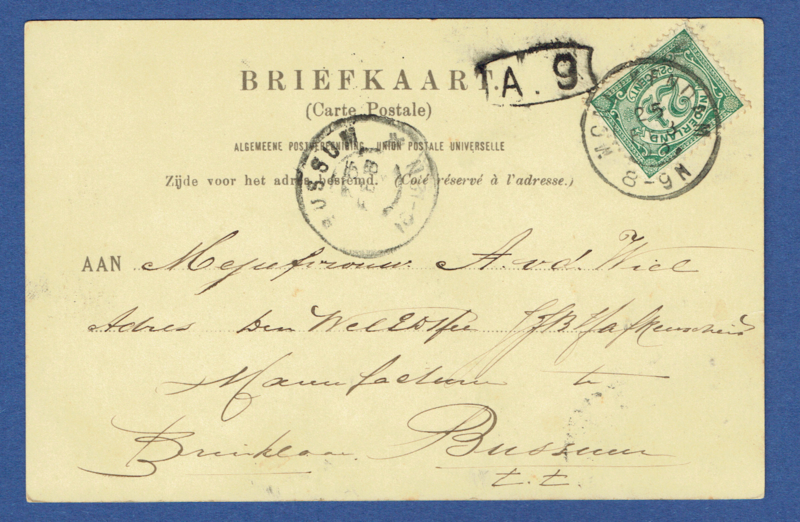 BRIEFKAART.
(Carte Postale)
ALGEMEENE POSTVEREENIGING. UNION POSTALE UNIVERSELLE
Zijde voor het adres bestemd. (Côté réservé à l'adresse.)
A. 9
NEDERLAND
2½
8-9N
BUSSUM
5 FEB
AAN Mejufvrouw A. v.d. Wiel
Adres den
Manufacturen te
Brinklaan Bussum
t.t.